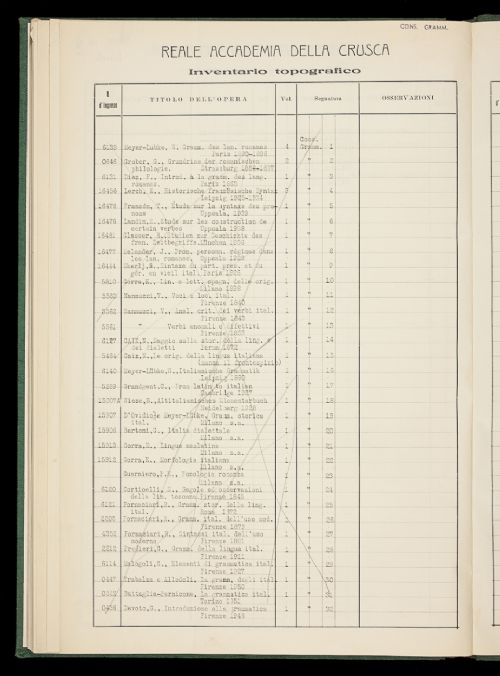 CONS. GRAMM.
REALE ACCADEMIA DELLA CRUSCA
Inventario topografico
N d'Ingresso TITOLO DELL'OPERA Vol. Segnatura OSSERVAZIONI
Cons.
6133 Meyer-Lubke, W. Gramm. des lan. romanes 4 Gramm. 1
Paris 1890-1906
0646 Grober, G., Grundriss der romanischen 2 " 2
philologie. Strassburg
6131 Diez, F., Introd. à la gramm. des lang. 1 " 3
romanes. Paris 1863
16456 Lerch, E., Historische Französische Syntax 3 " 4
Leipzig 1925-1934
16478 Étude sur la syntaxe des pro- 1 " 5
noms Uppsala, 1939
16476 Étude sur les construction de 1 " 6
certain verbes Uppsala 1938
16481 Glasser, R., Studien zur Geschichte des 1 " 7
fran. Zeitbegriffs. München 1936
16477 Pron. personn. régimes dans 1 " 8
les lan. romanes, Uppsala 1928
Sintaxe du part. pres. et du 1 " 9
gér. en vieil ital. Paris
5810 Gorra, E., lin. e lett. spagn. delle orig. 1 " 10
Milano 1898
Nannucci, V., Voci e loci ital. 1 " 11
Firenze 1840
Nannucci, V., Anal. crit. dei verbi ital. 1 " 12
Firenze 1843
" Verbi anomali e difettivi 1 " 13
Firenze 1853
CAIX, N., Saggio sulla stor. della ling. e 1 " 14
dei dialetti Parma 1872
5484 Caix, N., Le orig. della lingua italiana 1 " 15
(manca il frontespizio)
6140 Meyer-Lübke, W., Italienische Grammatik 1 " 16
Leipzig 1890
Grandgent, C., From latin to italian 1 " 17
Cambridge 1927
Wiese, B., Altitalienisches Elementarbuch 1 " 18
Heidelberg 1928
D'Ovidio e Meyer-Lübke, Gramm. storica 1 " 19
ital. Milano s.a.
15906 Bertoni, G., Italia dialettale 1 " 20
Milano s.a.
15913 Gorra, E., Lingue neolatine 1 " 21
Milano s.a.
15912 Gorra, E., Morfologia italiana 1 " 22
Milano s.a.
Guarnerio, P.E., Fonologia romanza 1 " 23
Milano s.a.
6120 Corticelli, S., Regole ed osservazioni 1 " 24
della lin. toscana. Firenze
6121 Fornaciari, R., Gramm. stor. della ling. 1 " 25
ital. Roma 1872
Fornaciari, R., Gramm. ital. dell'uso mod. 1 " 26
Firenze 1879
4352 Fornaciari, R., Sintassi ital. dell'uso 1 " 27
moderno Firenze 1881
Gramm. della lingua ital. 1 " 28
Firenze 1911
6114 Malagoli, G., Elementi di grammatica ital. 1 " 29
Firenze 1927
Trabalza e Allodoli, La gramm. degli ital. 1 " 30
Firenze
Battaglia-Pernicone, La grammatica ital. 1 " 31
Torino 1951
Devoto, G., Introduzione alla grammatica 1 " 32
Firenze